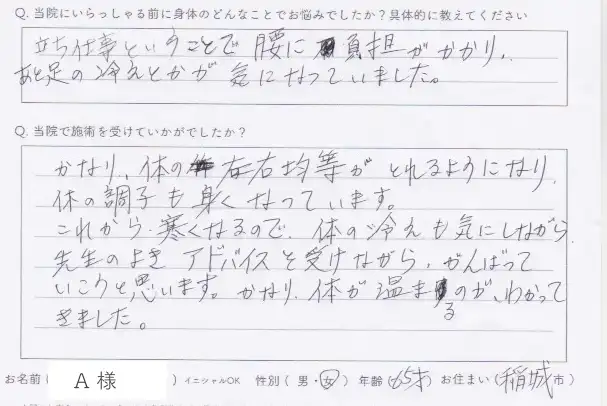 Q. 当院にいらっしゃる前に身体のどんなことでお悩みでしたか？具体的に教えてください
立ち仕事ということで腰に負担がかかり、
あと足の冷えとかが気になっていました。
Q. 当院で施術を受けていかがでしたか？
かなり、体の左右均等がとれるようになり、
体の調子も良くなっています。
これから寒くなるので、体の冷えも気にしながら、
先生のよきアドバイスを受けながら、がんばって
いこうと思います。かなり、体が温まるのが、わかって
きました。
お名前（ A 様 ）イニシャルOK 性別（男・女）年齢（65才）お住まい（稲城市）